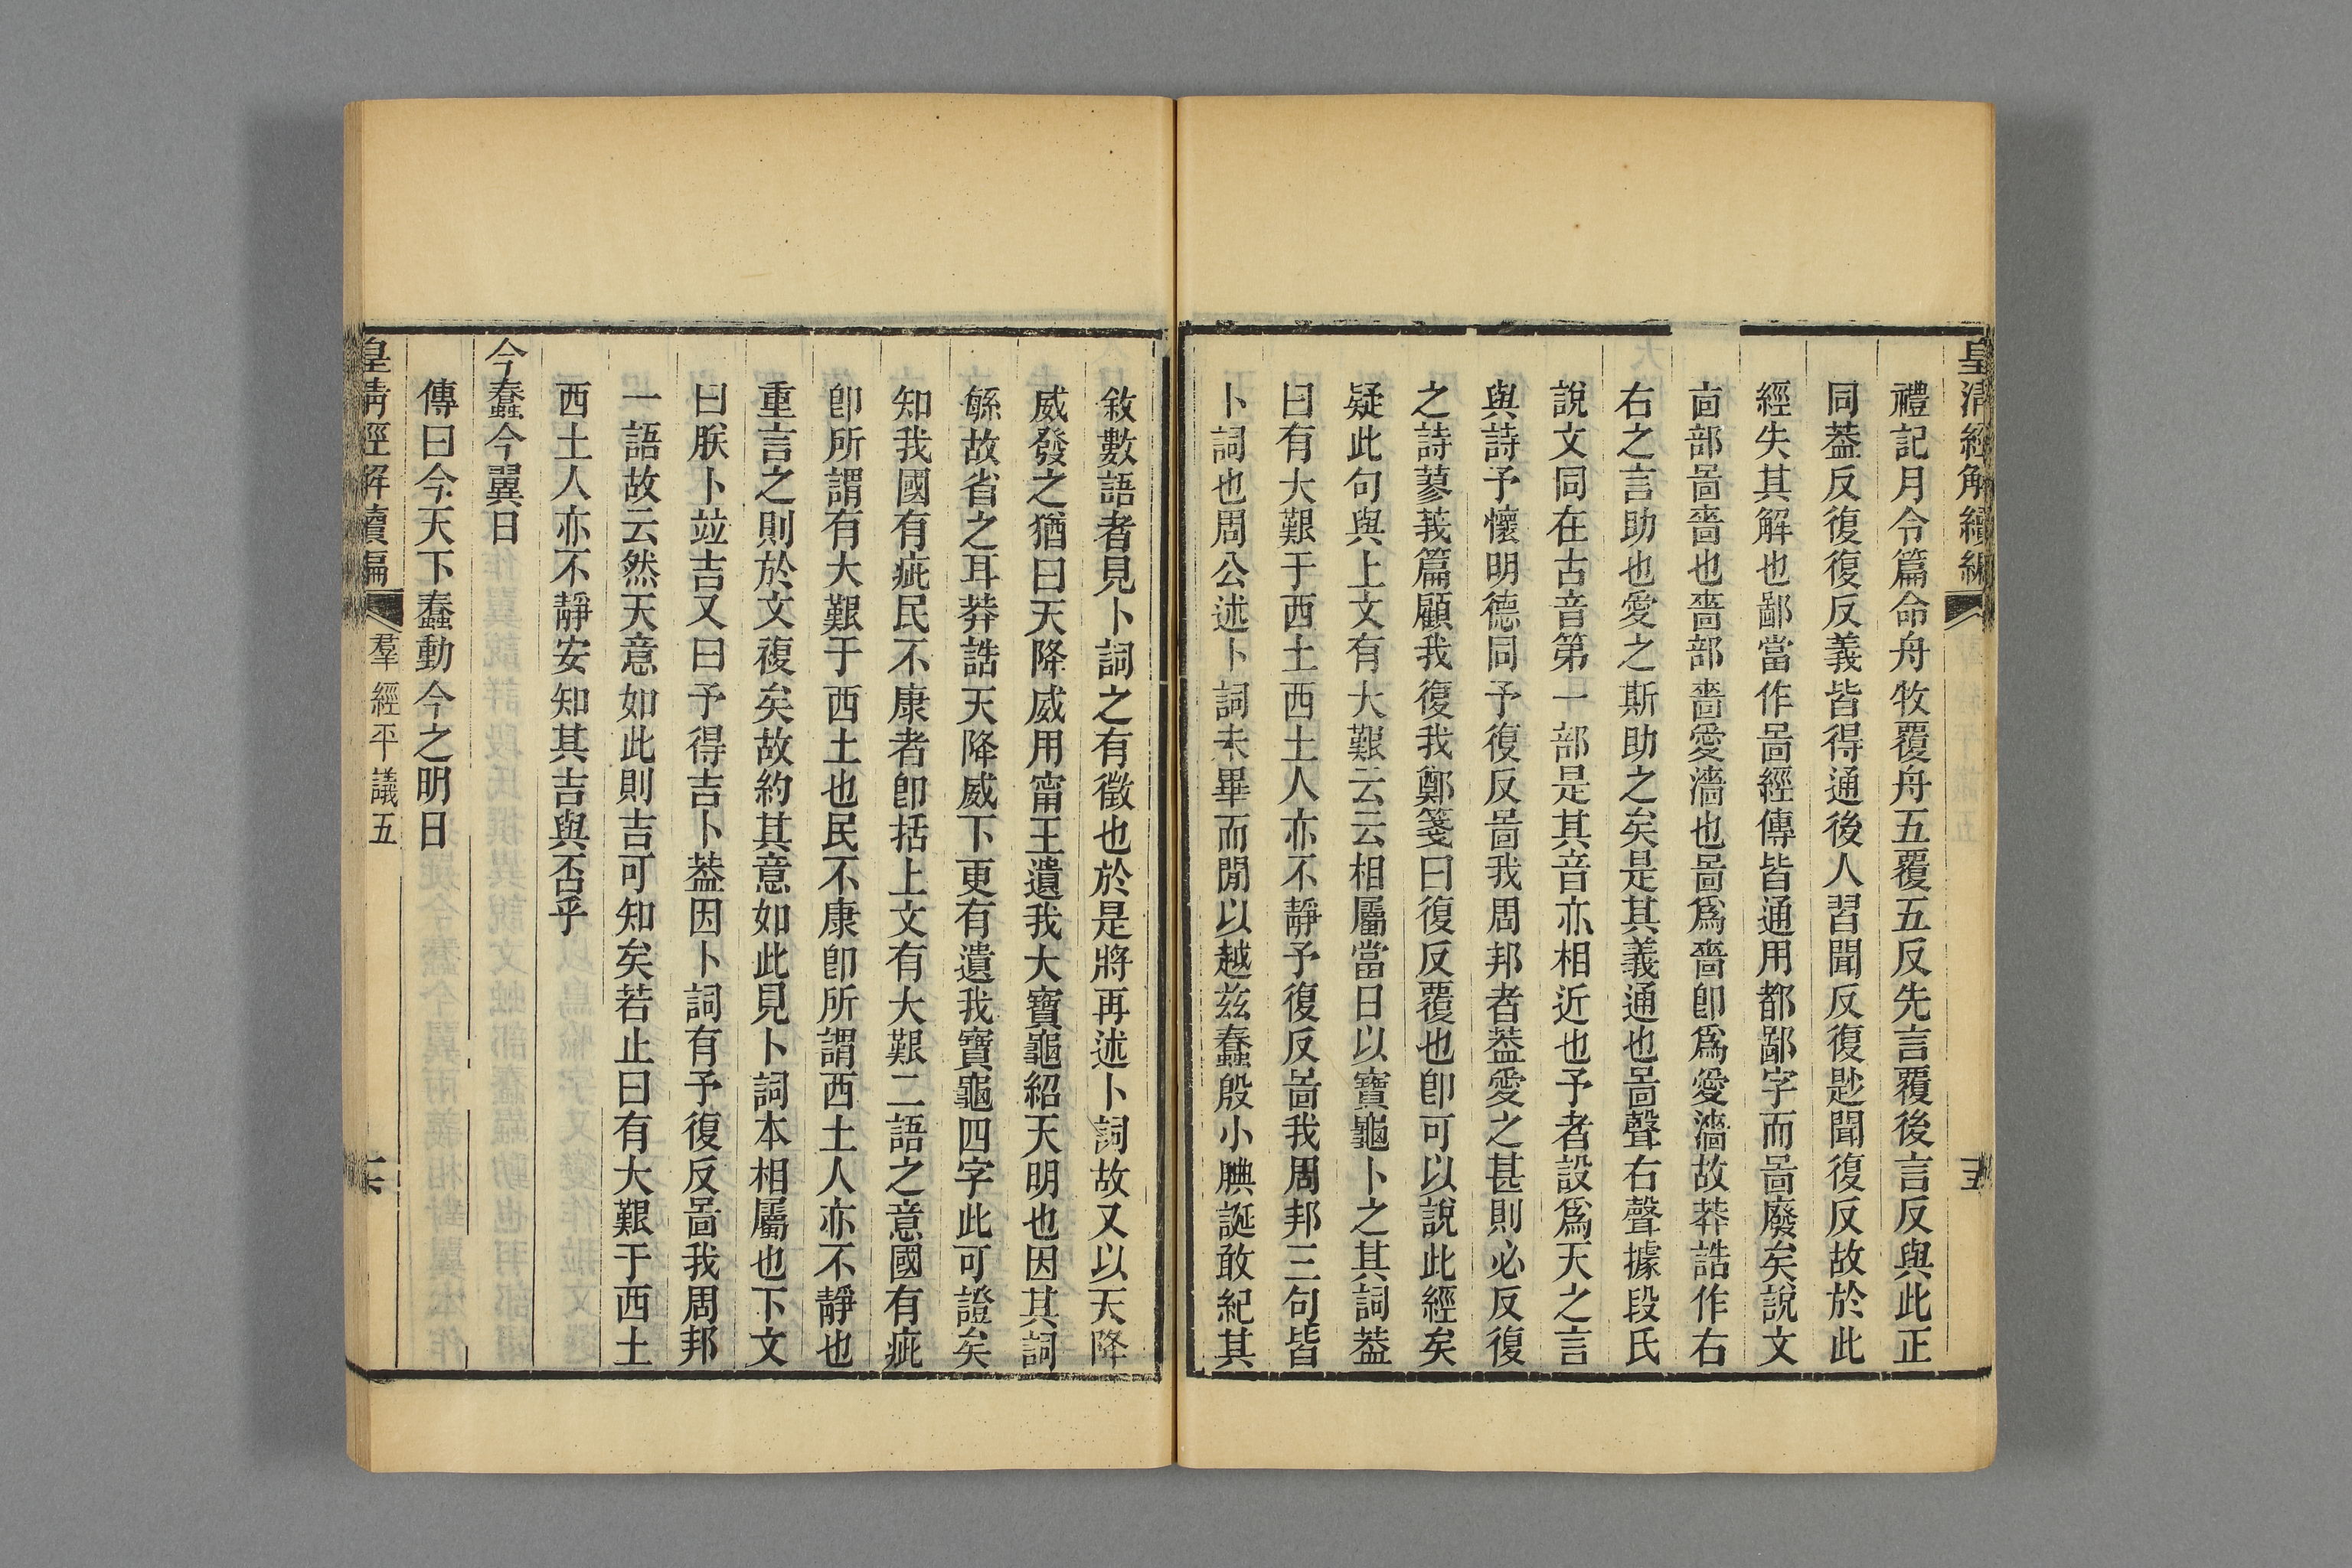 皇清經解續編
五
禮記月令篇命舟牧覆舟五覆五反先言覆後言反與此正
同葢反復復反義皆得通後人習聞反復尟聞復反故於此
經失其解也鄙當作啚經傳皆通用都鄙字而啚廢矣說文
㐭部啚嗇也嗇部嗇愛濇也啚爲嗇卽爲愛濇故莽誥作右
右之言助也愛之斯助之矣是其義通也啚聲右聲據段氏
說文同在古音第一部是其音亦相近也予者設爲天之言
與詩予懷明德同予復反啚我周邦者葢愛之甚則必反復
之詩蓼莪篇顧我復我鄭箋曰復反覆也卽可以說此經矣
疑此句與上文有大艱云云相屬當日以寶龜卜之其詞葢
曰有大艱于西土西土人亦不靜予復反啚我周邦三句皆
卜詞也周公述卜詞未畢而閒以越茲蠢殷小腆誕敢紀其
敘數語者見卜詞之有徵也於是將再述卜詞故又以天降
威發之猶曰天降威用甯王遺我大寶龜紹天明也因其詞
緐故省之耳莽誥天降威下更有遺我寶龜四字此可證矣
知我國有疵民不康者卽括上文有大艱二語之意國有疵
卽所謂有大艱于西土也民不康卽所謂西土人亦不靜也
重言之則於文複矣故約其意如此見卜詞本相屬也下文
曰朕卜竝吉又曰予得吉卜葢因卜詞有予復反啚我周邦
一語故云然天意如此則吉可知矣若止曰有大艱于西土
西土人亦不靜安知其吉與否乎
今蠢今翼日
傳曰今天下蠢動今之明日
皇清經解續編
羣經平議五